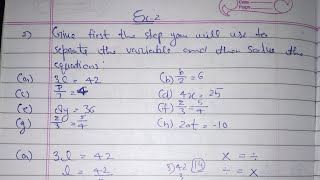 Ex 2
2) Give first the step you will use to
seperate the variable and then solve the
equations:
(a) 3l = 42 (b) b/2 = 6
(c) p/7 = 4 (d) 4x = 25
(e) 8y = 36 (f) z/3 = 5/4
(g) z/3 = 5/4 (h) 20t = -10
(a) 3l = 42 x = ÷
l = 42 ÷ = x